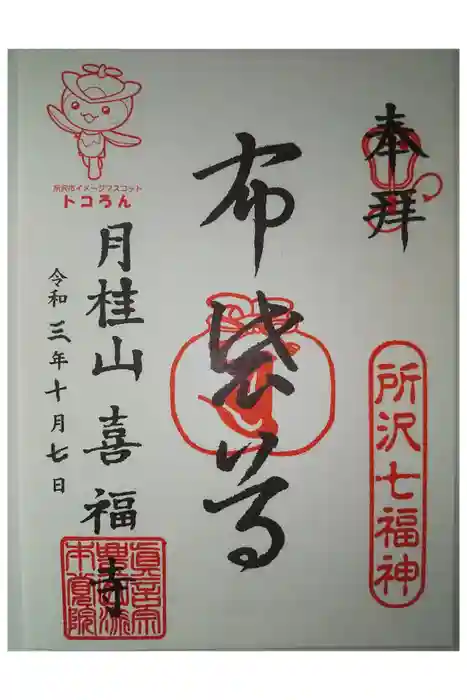 奉拝
所沢七福神
布袋尊
所沢市イメージマスコット
トコろん
月桂山 喜福寺
令和三年十月七日